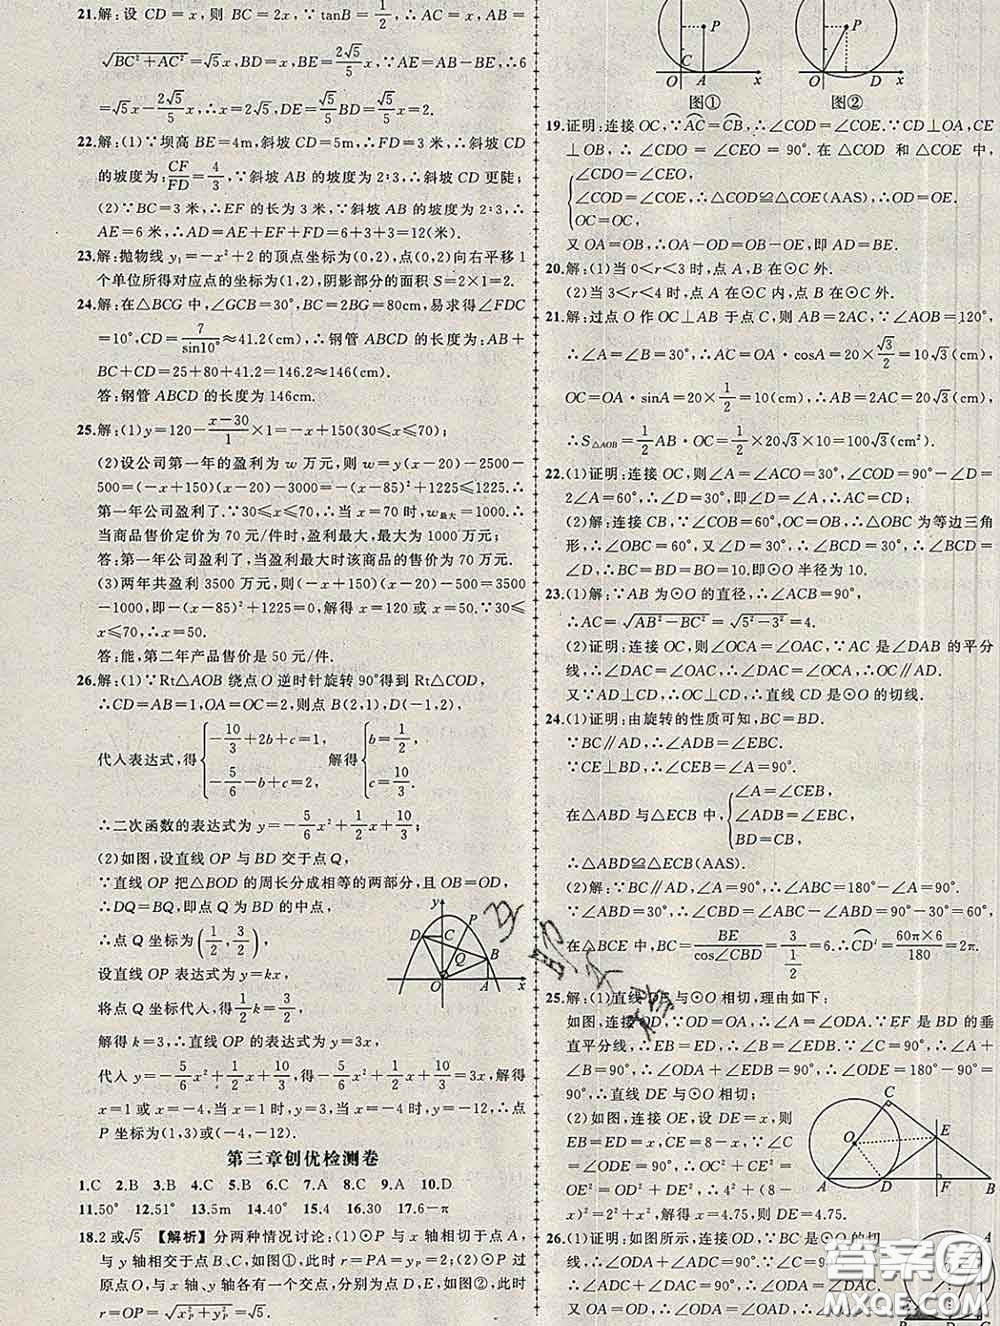 21.解:设 CD=x,则 BC=2x,∵ tanB=1/2,∴AC=x,∴AB=
√(BC²+AC²)=√5x,BD=x,BE=2√5/5 x,∵AE=AB−BE,∴6
=√5x−2√5/5 x,∴x=2√5,DE=√5/5 BD=√5/5 x=2.
22.解:(1)∵坝高 BE=4m,斜坡 CD=5m,∴FD=3米,∴斜坡 CD
的坡度为:CF/FD=4/3,∵斜坡 AB 的坡度为2∶3,∴斜坡 CD 更陡;
(2)∵BC=3米,∴EF 的长为3米,∵斜坡 AB 的坡度为2∶3,∴
AE=6米,∴AD=AE+EF+FD=6+3+3=12(米).
23.解:抛物线 y₁=−x²+2 的顶点坐标为(0,2),点(0,2)向右平移1
个单位所得对应点的坐标为(1,2),阴影部分的面积 S=2×1=2.
24.解:在△BCG 中,∠GCB=30°,BC=2BG=80cm,易求得∠FDC
=10°,CD=7/sin10°≈41.2(cm),∴钢管 ABCD 的长度为:AB+
BC+CD=25+80+41.2=146.2≈146(cm).
答:钢管 ABCD 的长度为146cm.
25.解:(1)y=120−(x−30)/1×1=−x+150(30≤x≤70);
(2)设公司第一年的盈利为 w 万元,则 w=y(x−20)−2500−
500=(−x+150)(x−20)−3000=−(x−85)²+1225≤1225.∴
第一年公司盈利了.∵30≤x≤70,∴当 x=70时,w最大=1000.∴
当商品售价定价为70元/件时,盈利最大,最大为1000万元;
答:第一年公司盈利了,当盈利最大时该商品的售价为70元/件.
(3)两年共盈利3500万元,则(−x+150)(x−20)−2500=3500
−1000,即−(x−85)²+1225=0,解得 x=120或x=50.∵30≤x
≤70,∴x=50.
答:能,第二年产品售价是50元/件.
26.解:(1)∵Rt△AOB 绕点 O 逆时针旋转90°得到 Rt△COD,
∴CD=AB=1,OA=OC=2,则点 B(2,1),D(−1,2),
代入表达式,得{−10/3+2b+c=1, −5/6−b+c=2. 解得{b=1/2, c=10/3.
∴二次函数的表达式为 y=−5/6x²+1/2x+10/3;
(2)如图,设直线 OP 与 BD 交于点 Q,
∵直线 OP 把△BOD 的周长分成相等的两部分,且 OB=OD,
∴DQ=BQ,即点 Q 为 BD 的中点,
∴点 Q 坐标为(1/2,3/2),
设直线 OP 表达式为 y=kx,
将点 Q 坐标代入,得1/2k=3/2,
解得 k=3,∴直线 OP 的表达式为 y=3x,
代入 y=−5/6x²+1/2x+10/3,得−5/6x²+1/2x+10/3=3x,解得
x=1或x=−4,当 x=1时,y=3,当 x=−4时,y=−12,∴点
P 坐标为(1,3)或(−4,−12).
y P D C B Q O A x
第三章创优检测卷
1.C 2.B 3.B 4.C 5.B 6.C 7.A 8.C 9.A 10.D
11.50° 12.51° 13.5m 14.40° 15.4 16.30 17.6−π
18.2或√5 【解析】分两种情况讨论:(1)⊙P 与 x 轴相切于点 A,
与 y 轴相交于点 B、C,如图①,此时 r=PA=yP=2;(2)⊙P 过
原点 O,与 x 轴、y 轴各有一个交点,分别为点 D、E,如图②,此时
r=OP=√(xP²+yP²)=√5.
P C O A x
图①
P O D x
图②
19.证明:连接 OC,∵AC=CB,∴∠COD=∠COE.∵CD⊥OA,CE
⊥OB,∴∠CDO=∠CEO=90°.在△COD 和△COE 中,
{∠CDO=∠CEO,
∠COD=∠COE,∴△COD≌△COE(AAS),∴OD=OE.
OC=OC,
又 OA=OB,∴OA−OD=OB−OE,即 AD=BE.
20.解:(1)当0<r<3时,点 A,B 在⊙O 外.
(2)当3<r<4时,点 A 在⊙O 内,点 B 在⊙O 外.
21.解:过点 O 作 OC⊥AB 于点 C,则 AB=2AC,∵∠AOB=120°,
∴∠A=∠B=30°,∴AC=OA·cosA=20×√3/2=10√3(cm),
OC=OA·sinA=20×1/2=10(cm),∴AB=2AC=20√3(cm),
∴S△AOB=1/2AB·OC=1/2×20√3×10=100√3(cm²).
22.(1)证明:连接 OC,则∠A=∠ACO=30°,∠COD=90°−∠D=
2∠A=60°,∴∠D=30°,即∠D=∠A,∴AC=CD;
(2)解:连接 CB,∵∠COB=60°,OC=OB,∴△OBC 为等边三角
形,∴∠OBC=60°,又∠D=30°,∴∠BCD=30°,∴∠BCD=
∠D=30°,∴BC=BD=BO=10.即⊙O 半径为10.
23.(1)解:∵AB 为⊙O 的直径,∴∠ACB=90°,
∴AC=√(AB²−BC²)=√(5²−3²)=4.
(2)证明:连接 OC,则∠OCA=∠OAC,∵AC 是∠DAB 的平分
线,∴∠DAC=∠OAC,∴∠DAC=∠OCA,∴OC∥AD.
又∵AD⊥CD,∴OC⊥CD,∴直线 CD 是⊙O 的切线.
24.(1)证明:由旋转的性质可知,BC=BD.
∵BC∥AD,∴∠ADB=∠EBC.
∵CE⊥BD,∴∠CEB=90°,∴∠A=∠CEB.
在△ABD 与△ECB 中,{∠A=∠CEB, ∠ADB=∠EBC, BD=CB,
∴△ABD≌△ECB(AAS).
(2)解:∵BC∥AD,∠A=90°,∴∠ABC=180°−∠A=90°.
∴∠CBD=∠ABC−∠ABD=90°−30°=60°,
在△BCE 中,BC=BE/cos∠CBD=3/(1/2)=6.∴CD=60π×6/180=2π.
25.解:(1)直线 DE 与⊙O 相切,理由如下:
如图,连接 OD,∵OD=OA,∴∠A=∠ODA.∵EF 是 BD 的垂
直平分线,∴EB=ED,∴∠B=∠EDB.∵∠C=90°,∴∠A+
∠B=90°,∴∠ODA+∠EDB=90°,∴∠ODE=180°−90°=
90°,∴直线 DE 与⊙O 相切;
(2)如图,连接 OE,设 DE=x,则
EB=ED=x,CE=8−x,∵∠C=
∠ODE=90°,∴OC²+CE²=OE²
=OD²+DE²,∴4²+(8−
x)²=2²+x²,解得 x=4.75,则 DE=4.75.
C O E A D F B
26.(1)证明:如图所示,连接 OD,∵BC 是⊙O 的切
∠ADC+∠ADB=
∴∠ADC+∠DAC=90°,∴∠ADB=∠DAC.
又 OA=OD,∴∠DAO=∠ODA,
答案圈
MXQE.COM